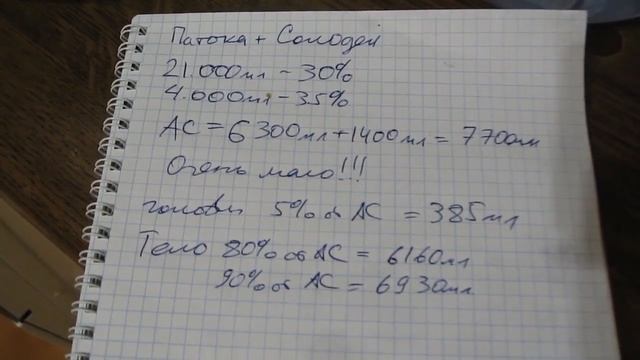 Патока + Солодей
21.000мл - 30%
4.000мл - 35%
АС = 6300мл + 1400мл = 7700мл
Очень мало!!!
головы 5% от АС = 385мл
Тело 80% от АС = 6160мл
90% от АС = 6930мл